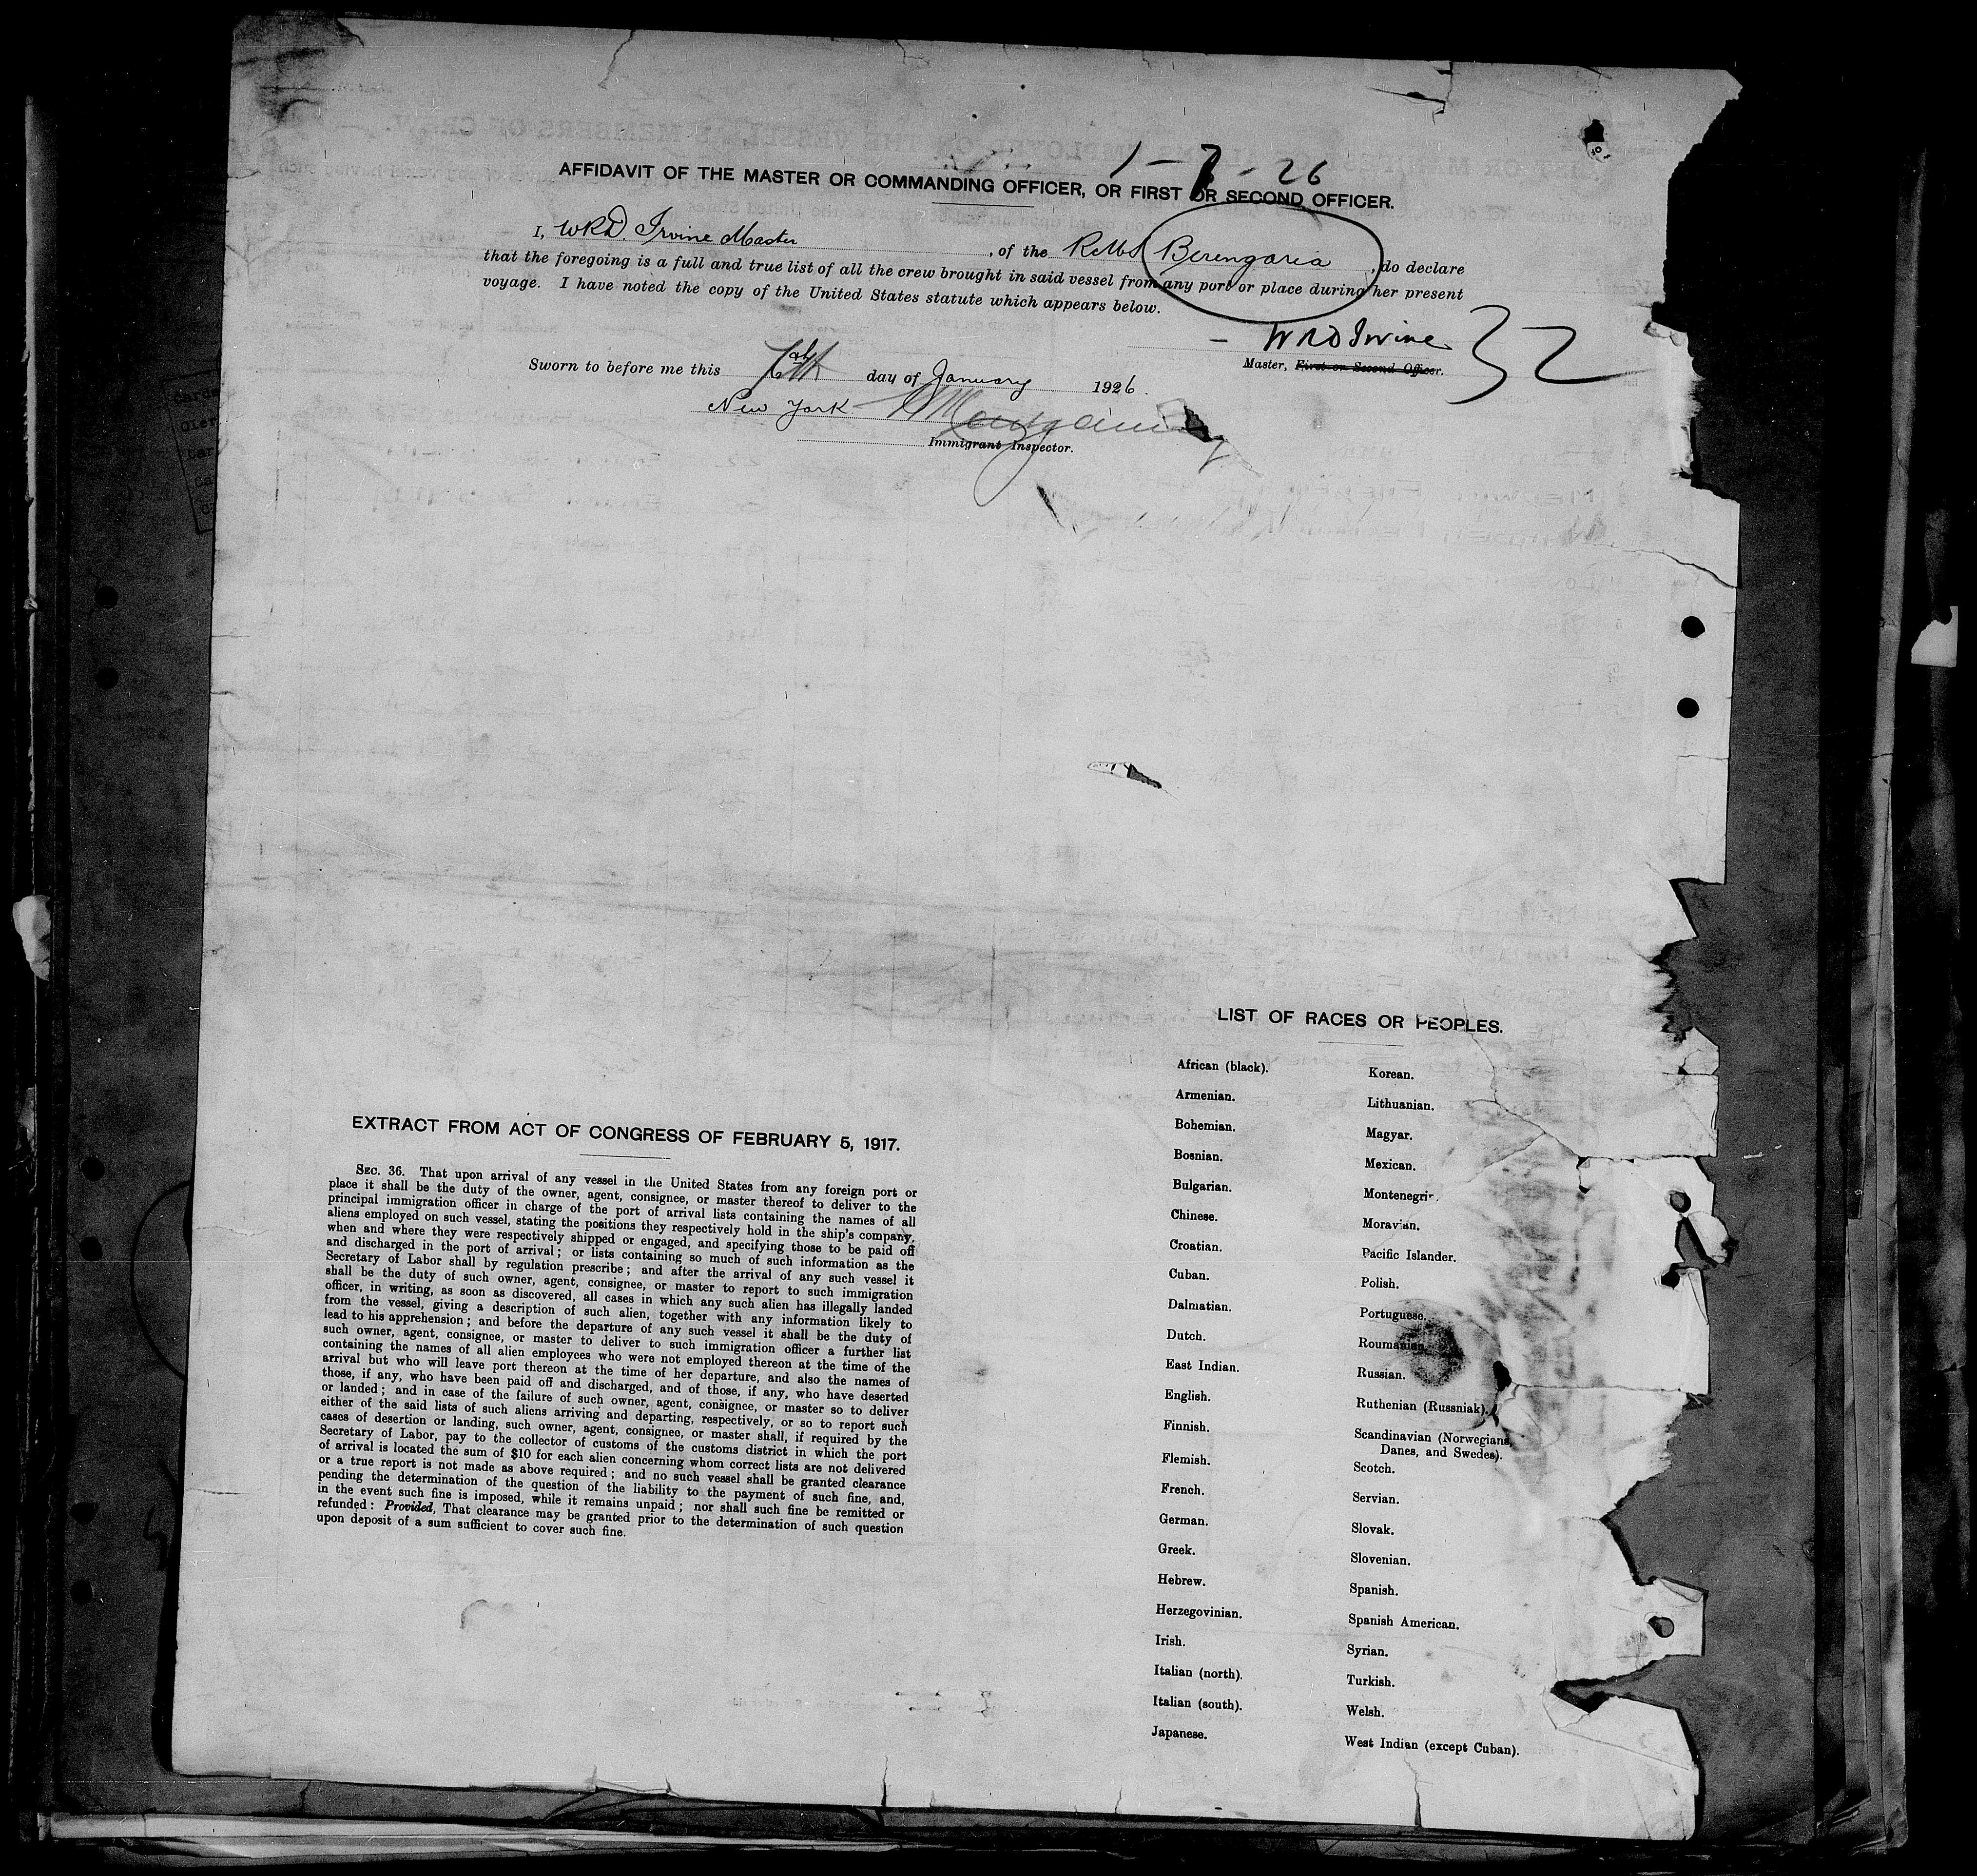 1-7-26
AFFIDAVIT OF THE MASTER OR COMMANDING OFFICER, OR FIRST OR SECOND OFFICER.
I, W.R.D. Irvine Master, of the RMS Berengaria, do declare
that the foregoing is a full and true list of all the crew brought in said vessel from any port or place during her present
voyage. I have noted the copy of the United States statute which appears below.
WRD Irvine
32
Master, First or Second Officer.
Sworn to before me this 7th day of January 1926.
New York
Immigrant Inspector.
EXTRACT FROM ACT OF CONGRESS OF FEBRUARY 5, 1917.
SEC. 36. That upon arrival of any vessel in the United States from any foreign port or
place it shall be the duty of the owner, agent, consignee, or master thereof to deliver to the
principal immigration officer in charge of the port of arrival lists containing the names of all
aliens employed on such vessel, stating the positions they respectively hold in the ship's company,
when and where they were respectively shipped or engaged, and specifying those to be paid off
and discharged in the port of arrival; or lists containing so much of such information as the
Secretary of Labor shall by regulation prescribe; and after the arrival of any such vessel it
shall be the duty of such owner, agent, consignee, or master to report to such immigration
officer, in writing, as soon as discovered, all cases in which any such alien has illegally landed
from the vessel, giving a description of such alien, together with any information likely to
lead to his apprehension; and before the departure of any such vessel it shall be the duty of
such owner, agent, consignee, or master to deliver to such immigration officer a further list
containing the names of all alien employees who were not employed thereon at the time of the
arrival but who will leave port thereon at the time of her departure, and also the names of
those, if any, who have been paid off and discharged, and of those, if any, who have deserted
or landed; and in case of the failure of such owner, agent, consignee, or master so to deliver
either of the said lists of such aliens arriving and departing, respectively, or so to report such
cases of desertion or landing, such owner, agent, consignee, or master shall, if required by the
Secretary of Labor, pay to the collector of customs of the customs district in which the port
of arrival is located the sum of $10 for each alien concerning whom correct lists are not delivered
or a true report is not made as above required; and no such vessel shall be granted clearance
pending the determination of the question of the liability to the payment of such fine, and,
in the event such fine is imposed, while it remains unpaid; nor shall such fine be remitted or
refunded: Provided, That clearance may be granted prior to the determination of such question
upon deposit of a sum sufficient to cover such fine.
LIST OF RACES OR PEOPLES.
African (black).
Armenian.
Bohemian.
Bosnian.
Bulgarian.
Chinese.
Croatian.
Cuban.
Dalmatian.
Dutch.
East Indian.
English.
Finnish.
Flemish.
French.
German.
Greek.
Hebrew.
Herzegovinian.
Irish.
Italian (north).
Italian (south).
Japanese.
Korean.
Lithuanian.
Magyar.
Mexican.
Montenegrin.
Moravian.
Pacific Islander.
Polish.
Portuguese.
Roumanian.
Russian.
Ruthenian (Russniak).
Scandinavian (Norwegians,
Danes, and Swedes).
Scotch.
Servian.
Slovak.
Slovenian.
Spanish.
Spanish American.
Syrian.
Turkish.
Welsh.
West Indian (except Cuban).